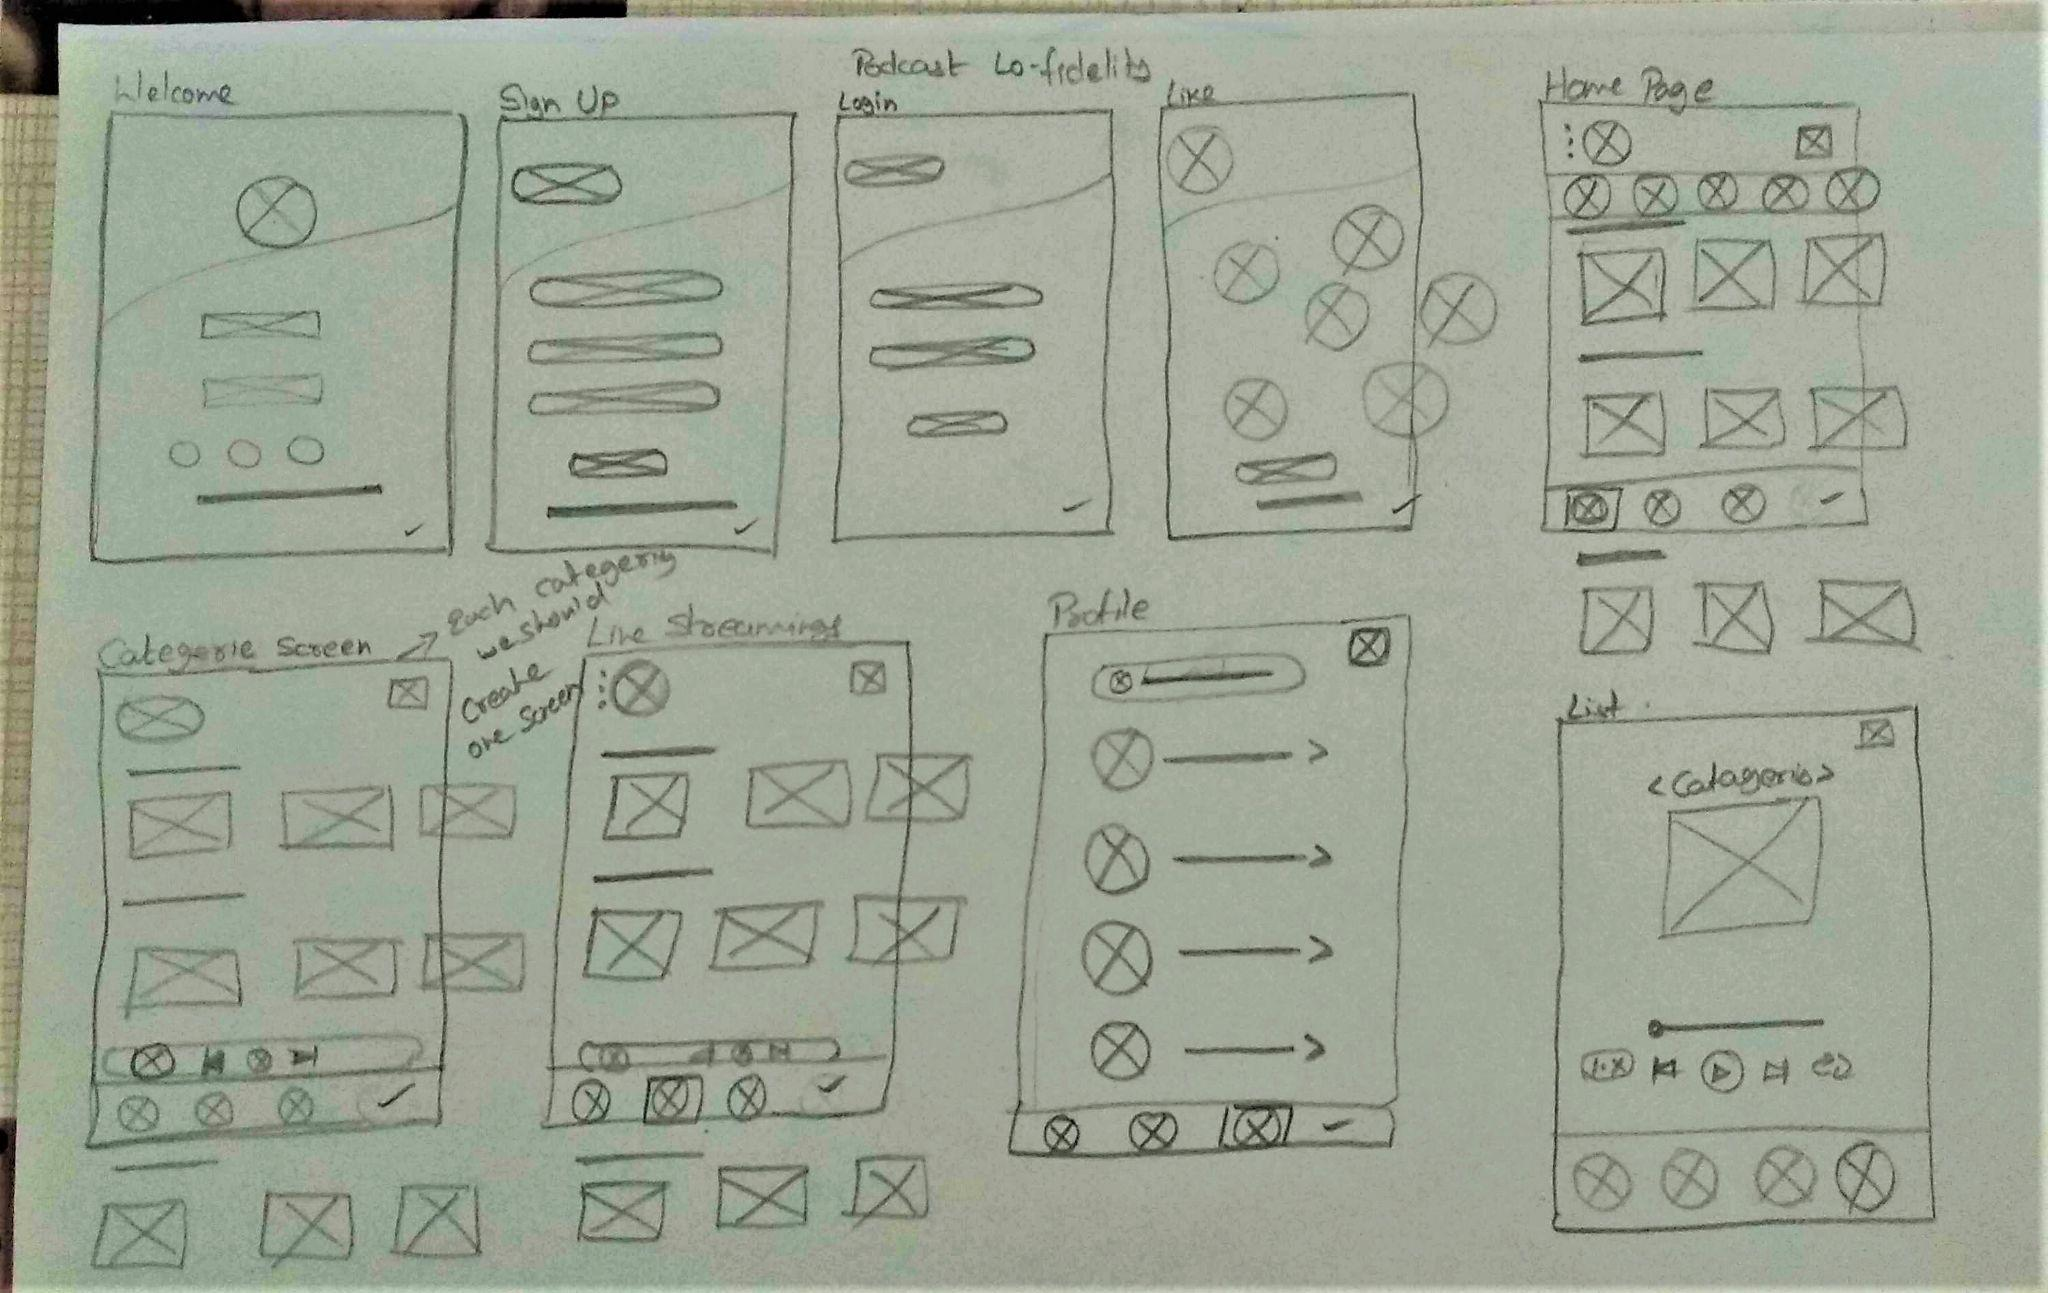 Podcast Lo-fidelity
Welcome
Sign Up
Login
Like
Home Page
Categorie Screen
Each categeris
we should
Create
one screen
Live Streamings
Profile
List
<Catagoris>
1.x